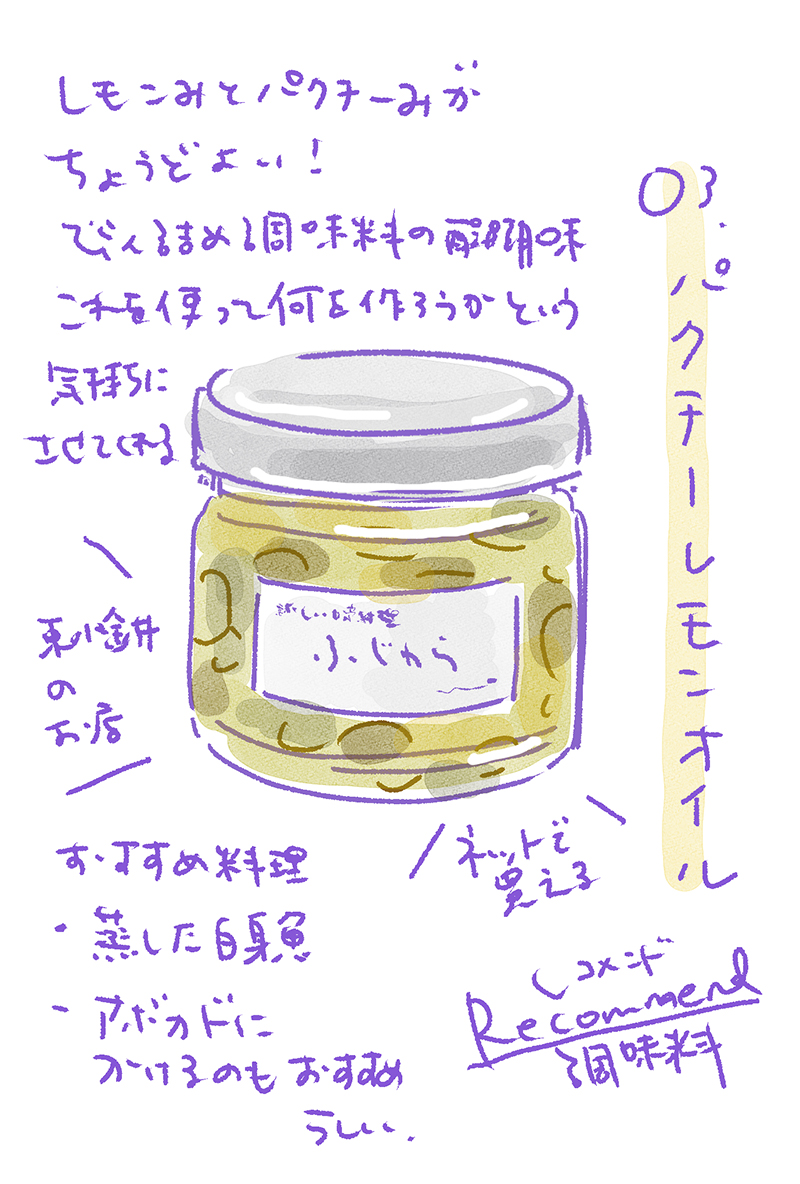 03.パクチーレモンオイル
レモンみとパクチーみが
ちょうどよい！
びん詰め調味料の醍醐味
これを使って何を作ろうかという
気持ちに
させてくれる
新しい日常料理
ふじわら
東小金井
の
お店
ネットで
買える
おすすめ料理
・蒸した白身魚
・アボカドに
かけるのもおすすめ
らしい.
レコメンド
Recommend
調味料